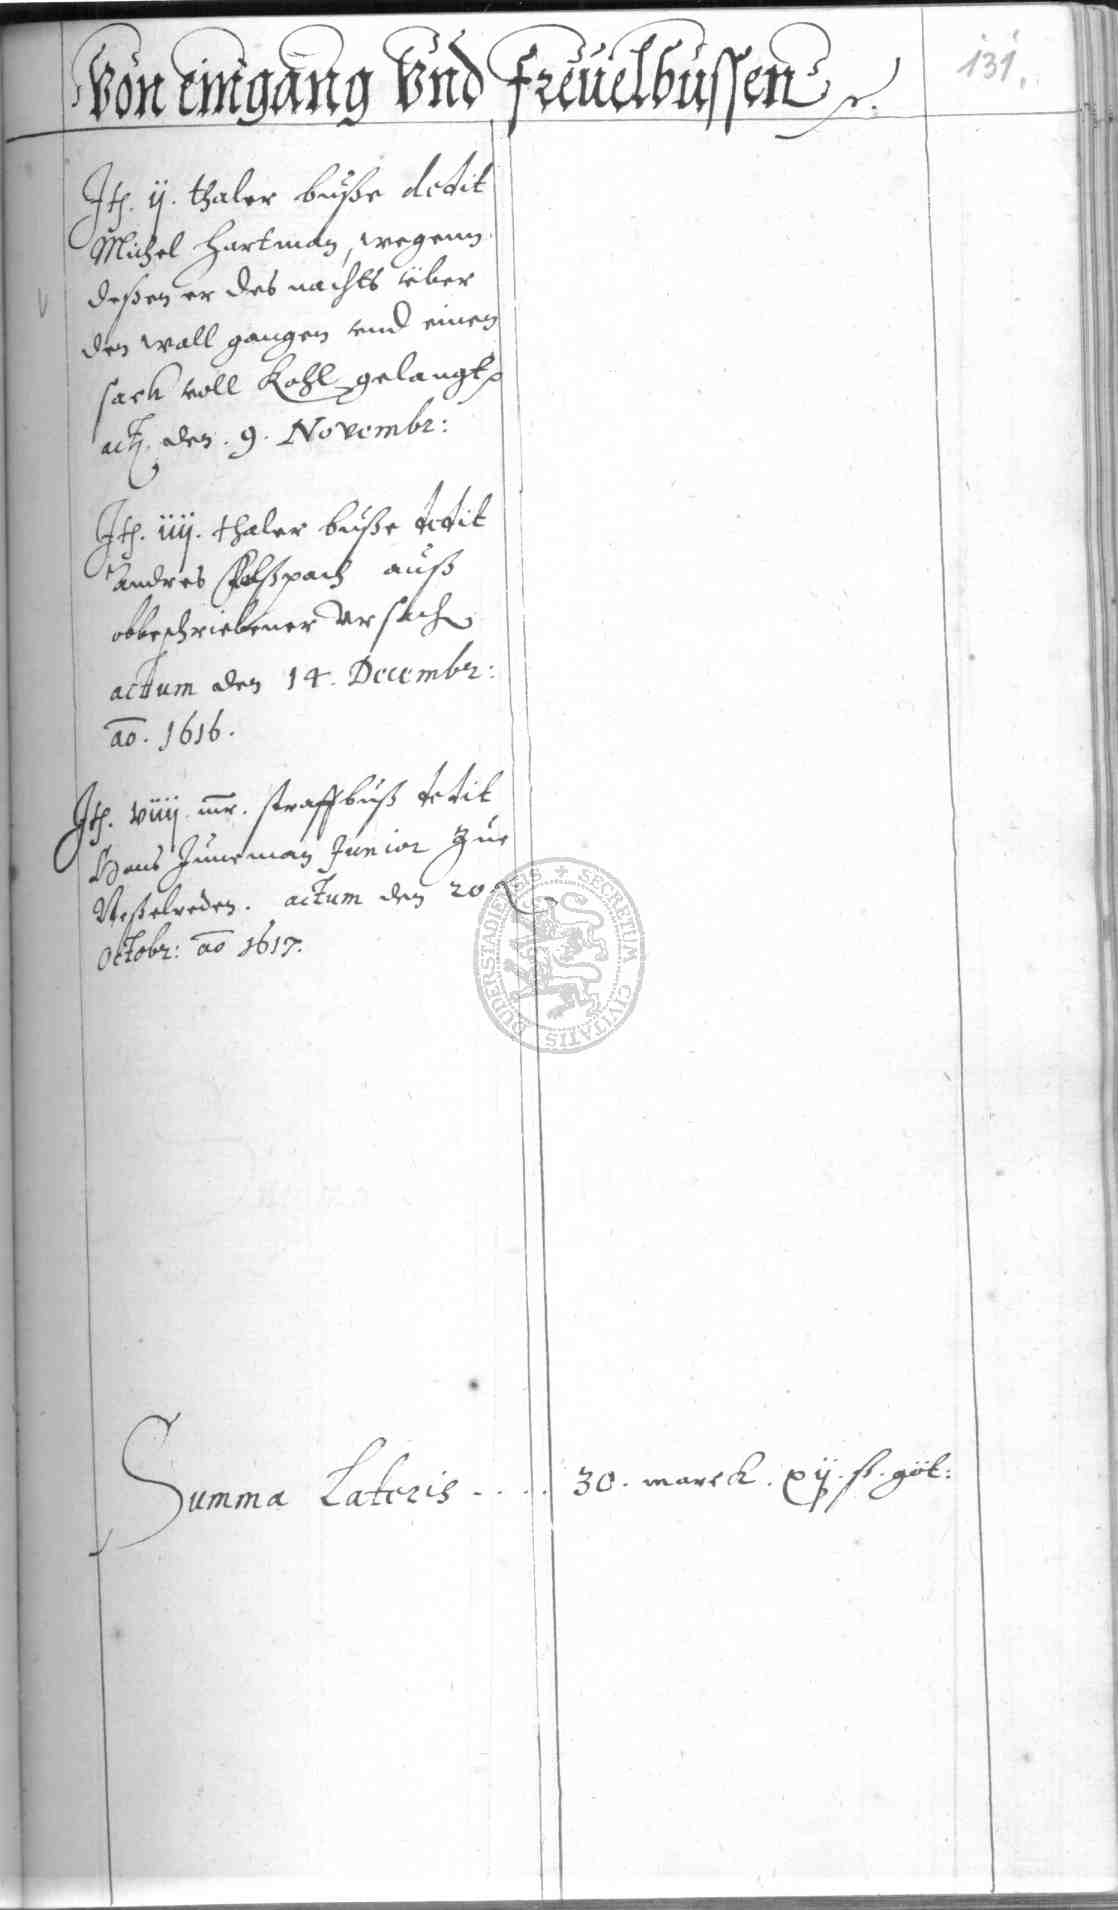 Von eingang Vnd freuelbussen
131.
Ith. ij. thaler buße dedit
Michel Hartman, wegenn
deßen er des nachts über
den wall gangen vnd einen
sack voll Kohl gelangt
act. den. 9. Novembr:
Ith. iiij. thaler buße dedit
Andres auß
obbeschriebener Vrsach
actum den 14. Decembr:
ao. 1616.
Ith. viiij. mr. straffbuß dedit
Hans Juneman Junior zue
Neßelreden. actum den 20
Octobr: ao 1617.
SECRETUM CIVITATIS DUDERSTADIENSIS
Summa Lateris .... 30. marck. xij. ß. göt: